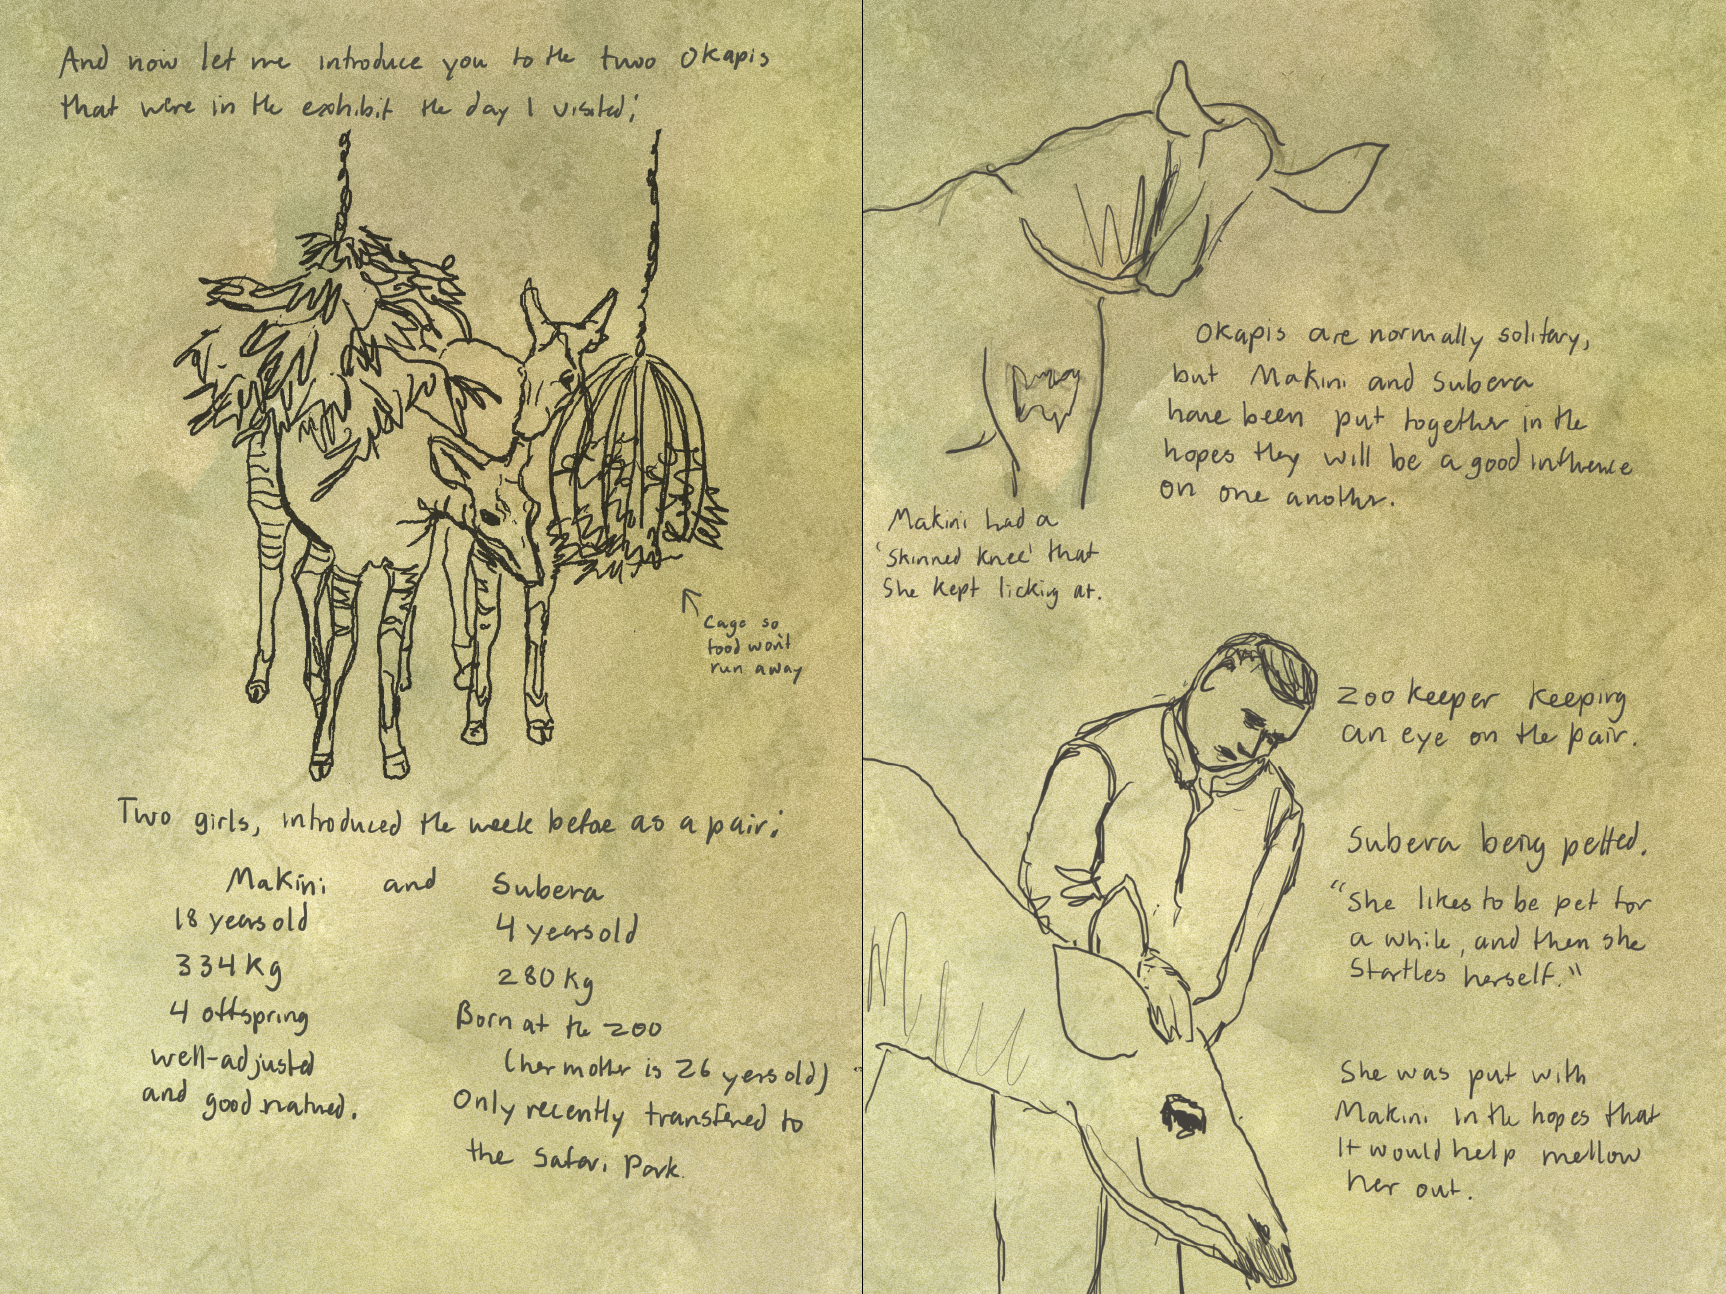 And now let me introduce you to the two Okapis
that were in the exhibit the day I visited;
Cage so
food won't
run away
Two girls, introduced the week before as a pair:
Makini and Subera
18 years old
334 kg
4 offspring
well-adjusted
and good natured.
4 years old
280 kg
Born at the zoo
(her mother is 26 yers old)
Only recently transfered to
the Safari Park.
Okapis are normally solitary,
but Makini and Subera
have been put together in the
hopes they will be a good influence
on one another.
Makini had a
'skinned knee' that
She kept licking at.
Zoo keeper keeping
an eye on the pair.
Subera being petted.
"She likes to be pet for
a while, and then she
Startles herself."
She was put with
Makini in the hopes that
It would help mellow
her out.